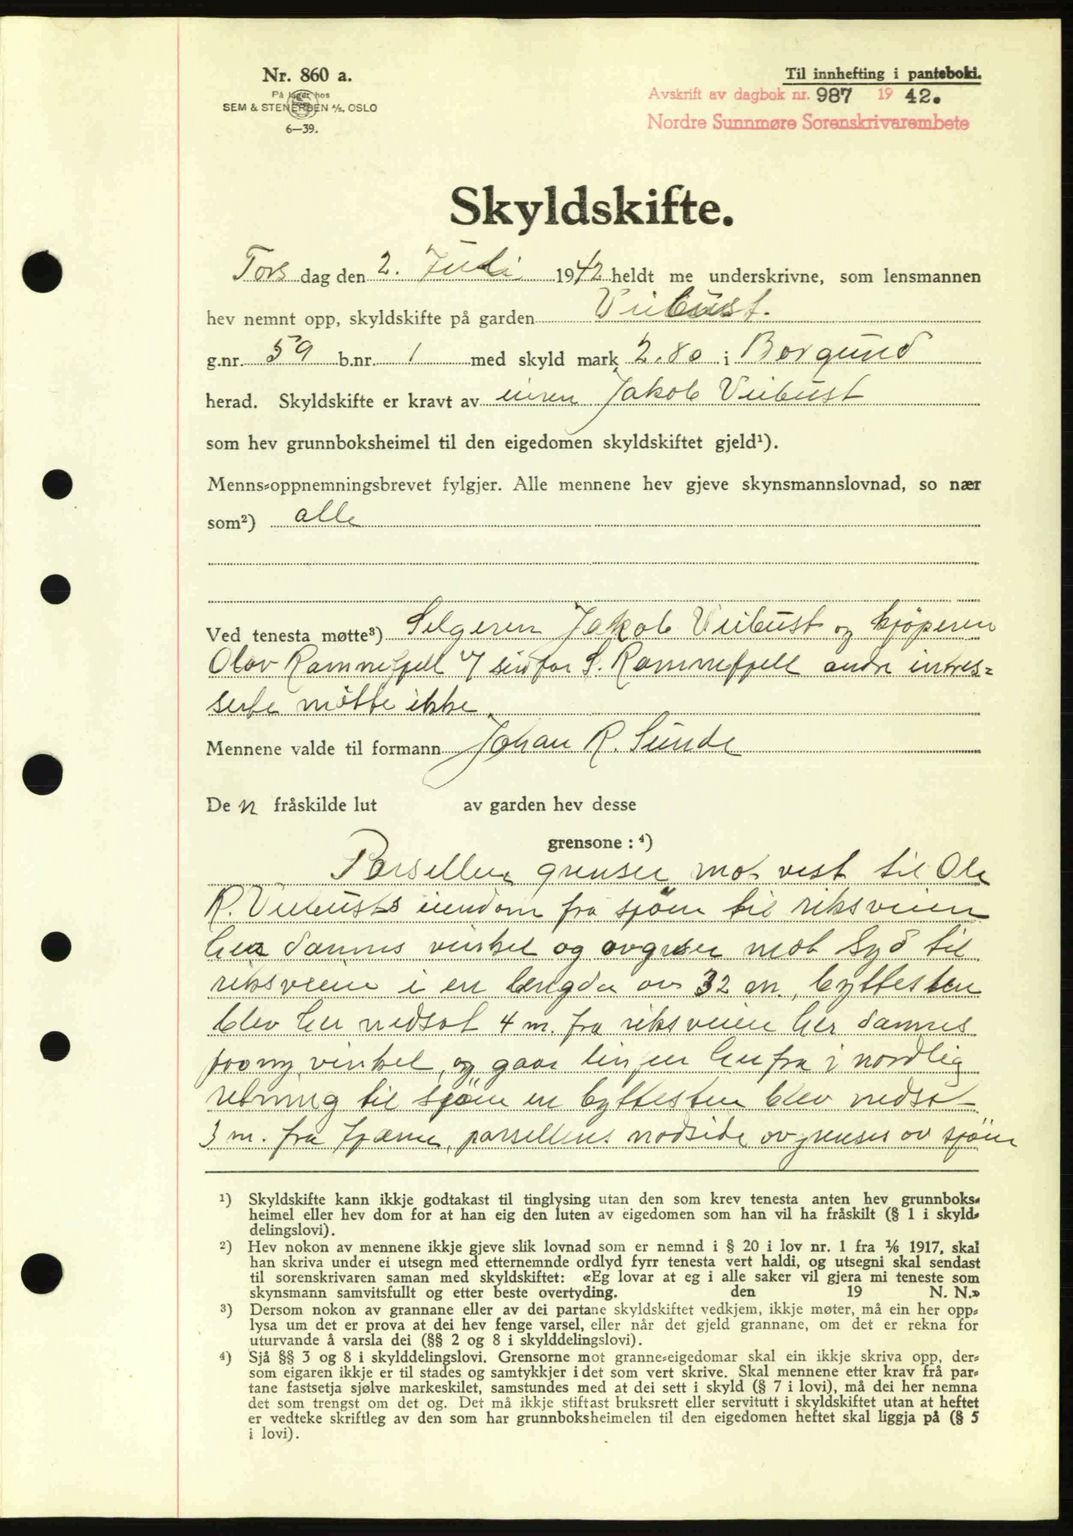 Nr. 860 a.
På lager hos
SEM & STENERSEN A/S, OSLO
6—39.
Til innhefting i panteboki.
Avskrift av dagbok nr. 987 1942.
Nordre Sunnmøre Sorenskrivarembete
Skyldskifte.
Torsdag den 2. Juli 1942 heldt me underskrivne, som lensmannen
hev nemnt opp, skyldskifte på garden Veibust.
g.nr. 59 b.nr. 1 med skyld mark 2.80 i Borgund
herad. Skyldskifte er kravt av eieren Jakob Veibust
som hev grunnboksheimel til den eigedomen skyldskiftet gjeld¹).
Menns-oppnemningsbrevet fylgjer. Alle mennene hev gjeve skynsmannslovnad, so nær
som²) alle
Ved tenesta møtte³) Selgeren Jakob Veibust og kjøperen
Olav Rammefjell v/ sin far S. Rammefjell andre intres-
serte møtte ikke
Mennene valde til formann Johan R. Sunde
De n fråskilde lut av garden hev desse
grensone : ⁴)
Parsellen grenser mot vest til Ole
R. Veibusts eiendom fra sjøen til riksveien
her dannes vinkel og avgrenser mot Syd til
riksveien i en lengde av 32 m., byttesten
blev her nedsat 4 m. fra riksveien her dannes
paany vinkel, og gaar linjen herfra i nordlig
retning til sjøen en byttesten blev nedsat
3 m. fra fjæren, parsellens nodside avgrenses av sjøen
¹) Skyldskifte kann ikkje godtakast til tinglysing utan den som krev tenesta anten hev grunnboks-
heimel eller hev dom for at han eig den luten av eigedomen som han vil ha fråskilt (§ 1 i skyld-
delingslovi).
²) Hev nokon av mennene ikkje gjeve slik lovnad som er nemnd i § 20 i lov nr. 1 fra ¹/₆ 1917, skal
han skriva under ei utsegn med etternemnde ordlyd fyrr tenesta vert haldi, og utsegni skal sendast
til sorenskrivaren saman med skyldskiftet: «Eg lovar at eg i alle saker vil gjera mi teneste som
skynsmann samvitsfullt og etter beste overtyding. den 19 N. N.»
³) Dersom nokon av grannane eller av dei partane skyldskiftet vedkjem, ikkje møter, må ein her opp-
lysa um det er prova at dei hev fenge varsel, eller når det gjeld grannane, om det er rekna for
uturvande å varsla dei (§§ 2 og 8 i skylddelingslovi).
⁴) Sjå §§ 3 og 8 i skylddelingslovi. Grensorne mot granne-eigedomar skal ein ikkje skriva opp, der-
som eigaren ikkje er til stades og samtykkjer i det som vert skrive. Skal mennene etter krav frå par-
tane fastsetja sjølve markeskilet, samstundes med at dei sett i skyld (§ 7 i lovi), må dei her nemna
det som trengst om det og. Det må ikkje stiftast bruksrett eller servitutt i skyldskiftet utan at heftet
er vedteke skriftleg av den som har grunnboksheimelen til den eigedomen heftet skal liggja på (§ 5
i lovi).